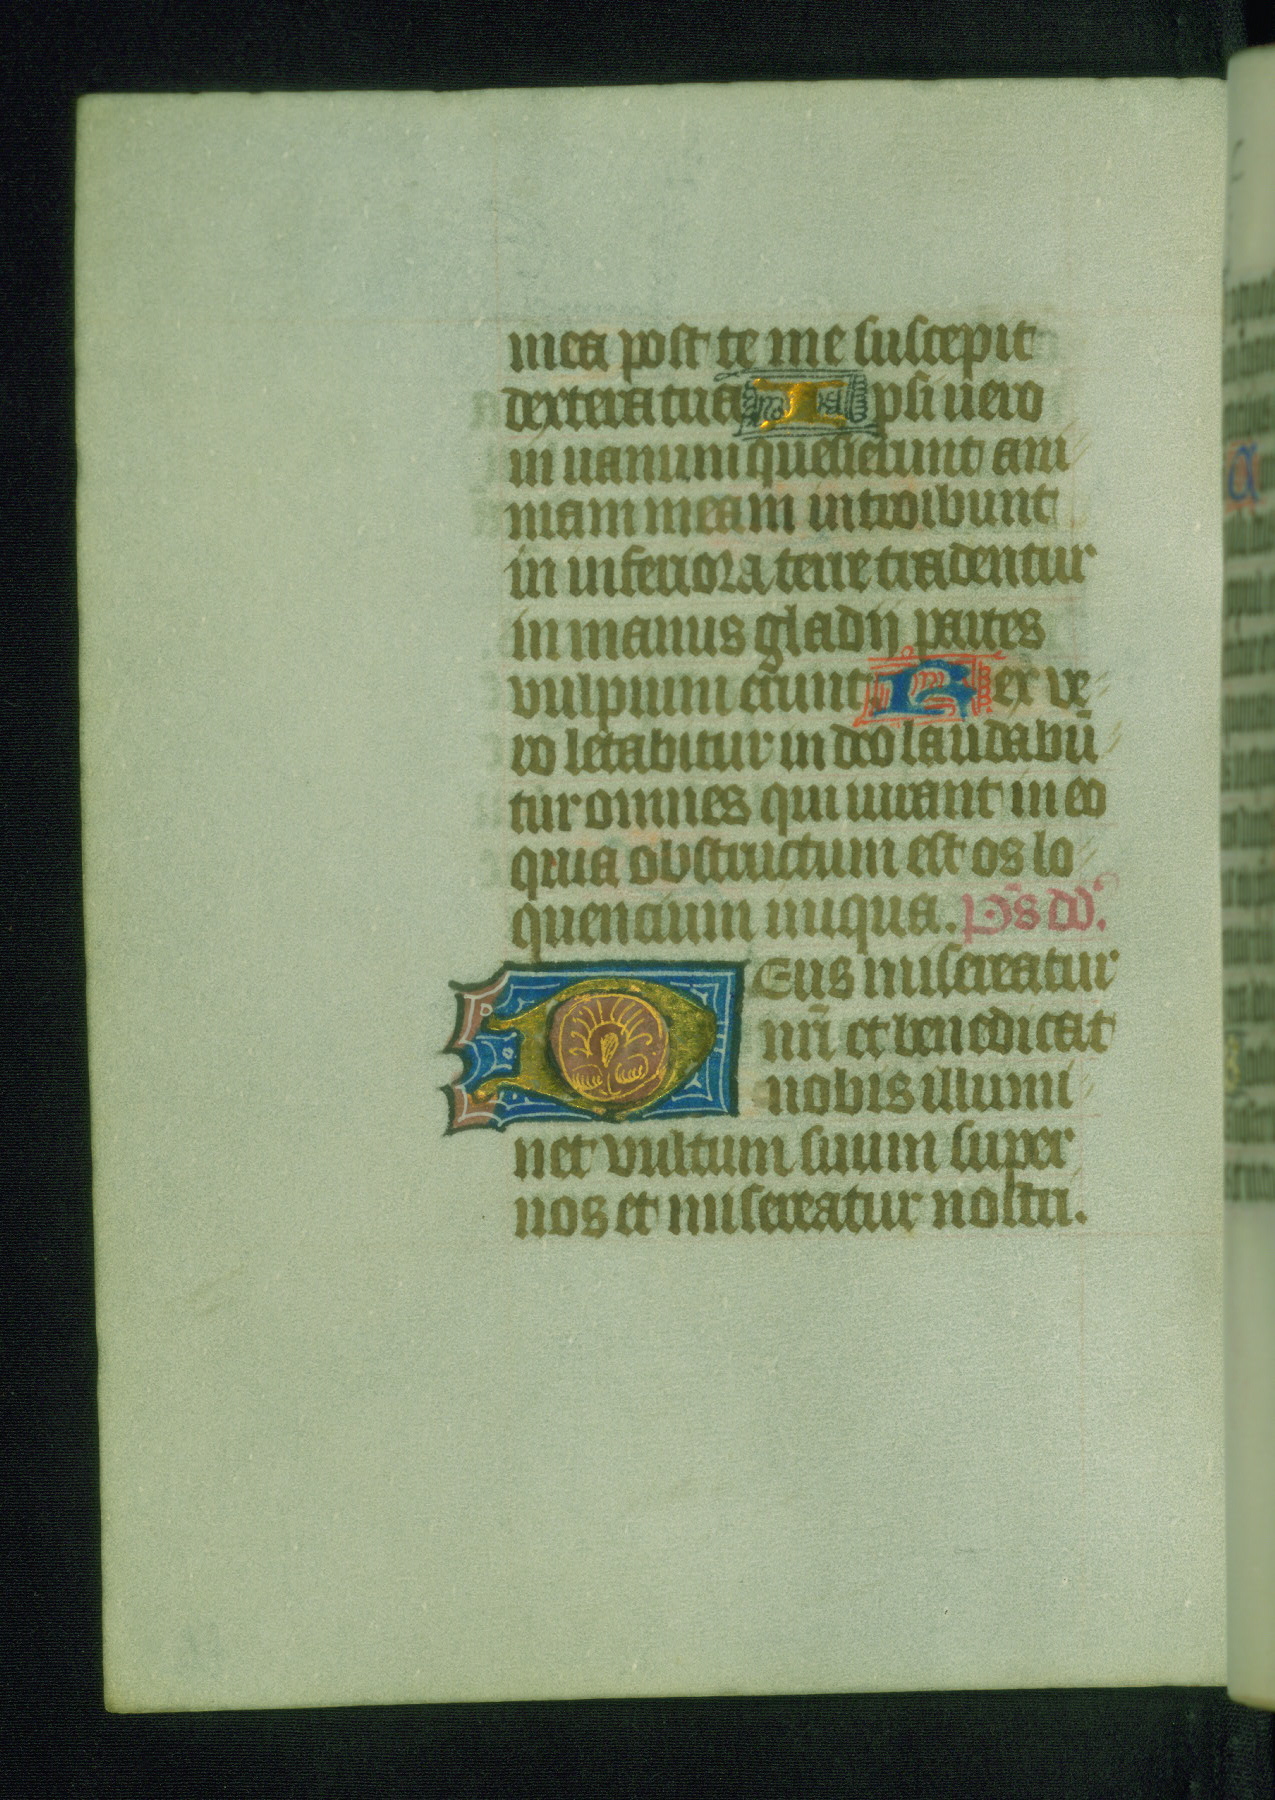 mea post te me suscepit
dextera tua Ipsi uero
in uanum quesierunt ani
mam meam introibunt
in inferiora terre tradentur
in manus gladij partes
vulpium erunt Rex ve
ro letabitur in deo laudabū
tur omnes qui iurant in eo
quia obstructum est os lo
quencium iniqua. p̄s dd̄.
DEus misereatur
nr̄i et benedicat
nobis illumi
net vultum suum super
nos et misereatur nostri.